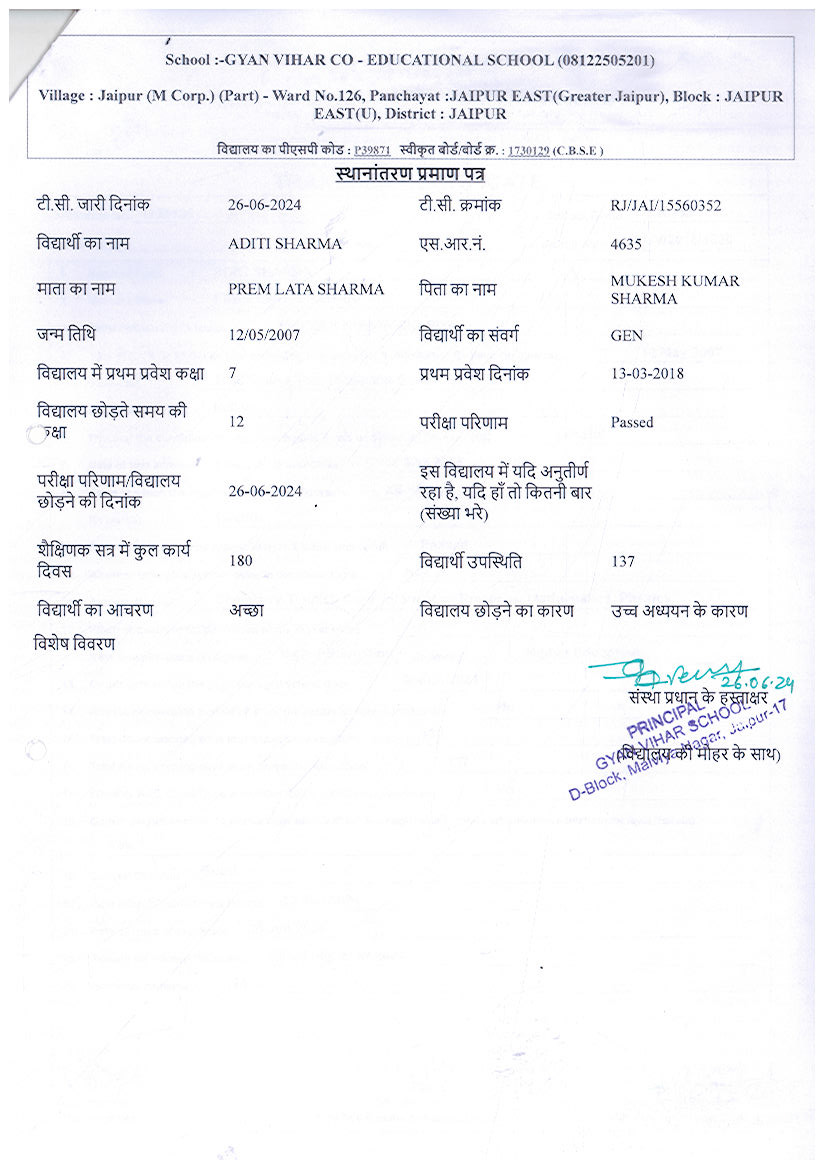 School :-GYAN VIHAR CO - EDUCATIONAL SCHOOL (08122505201)
Village : Jaipur (M Corp.) (Part) - Ward No.126, Panchayat :JAIPUR EAST(Greater Jaipur), Block : JAIPUR
EAST(U), District : JAIPUR
विद्यालय का पीएसपी कोड : P39871 स्वीकृत बोर्ड/बोर्ड क्र. : 1730129 (C.B.S.E )
स्थानांतरण प्रमाण पत्र
टी.सी. जारी दिनांक 26-06-2024 टी.सी. क्रमांक RJ/JAI/15560352
विद्यार्थी का नाम ADITI SHARMA एस.आर.नं. 4635
माता का नाम PREM LATA SHARMA पिता का नाम MUKESH KUMAR
SHARMA
जन्म तिथि 12/05/2007 विद्यार्थी का संवर्ग GEN
विद्यालय में प्रथम प्रवेश कक्षा 7 प्रथम प्रवेश दिनांक 13-03-2018
विद्यालय छोड़ते समय की
कक्षा 12 परीक्षा परिणाम Passed
परीक्षा परिणाम/विद्यालय
छोड़ने की दिनांक 26-06-2024
इस विद्यालय में यदि अनुतीर्ण
रहा है, यदि हाँ तो कितनी बार
(संख्या भरे)
शैक्षिणक सत्र में कुल कार्य
दिवस 180 विद्यार्थी उपस्थिति 137
विद्यार्थी का आचरण अच्छा विद्यालय छोड़ने का कारण उच्च अध्ययन के कारण
विशेष विवरण
26.06.24
संस्था प्रधान के हस्ताक्षर
PRINCIPAL
GYAN VIHAR SCHOOL
D-Block, Malviya Nagar, Jaipur-17
(विद्यालय की मोहर के साथ)